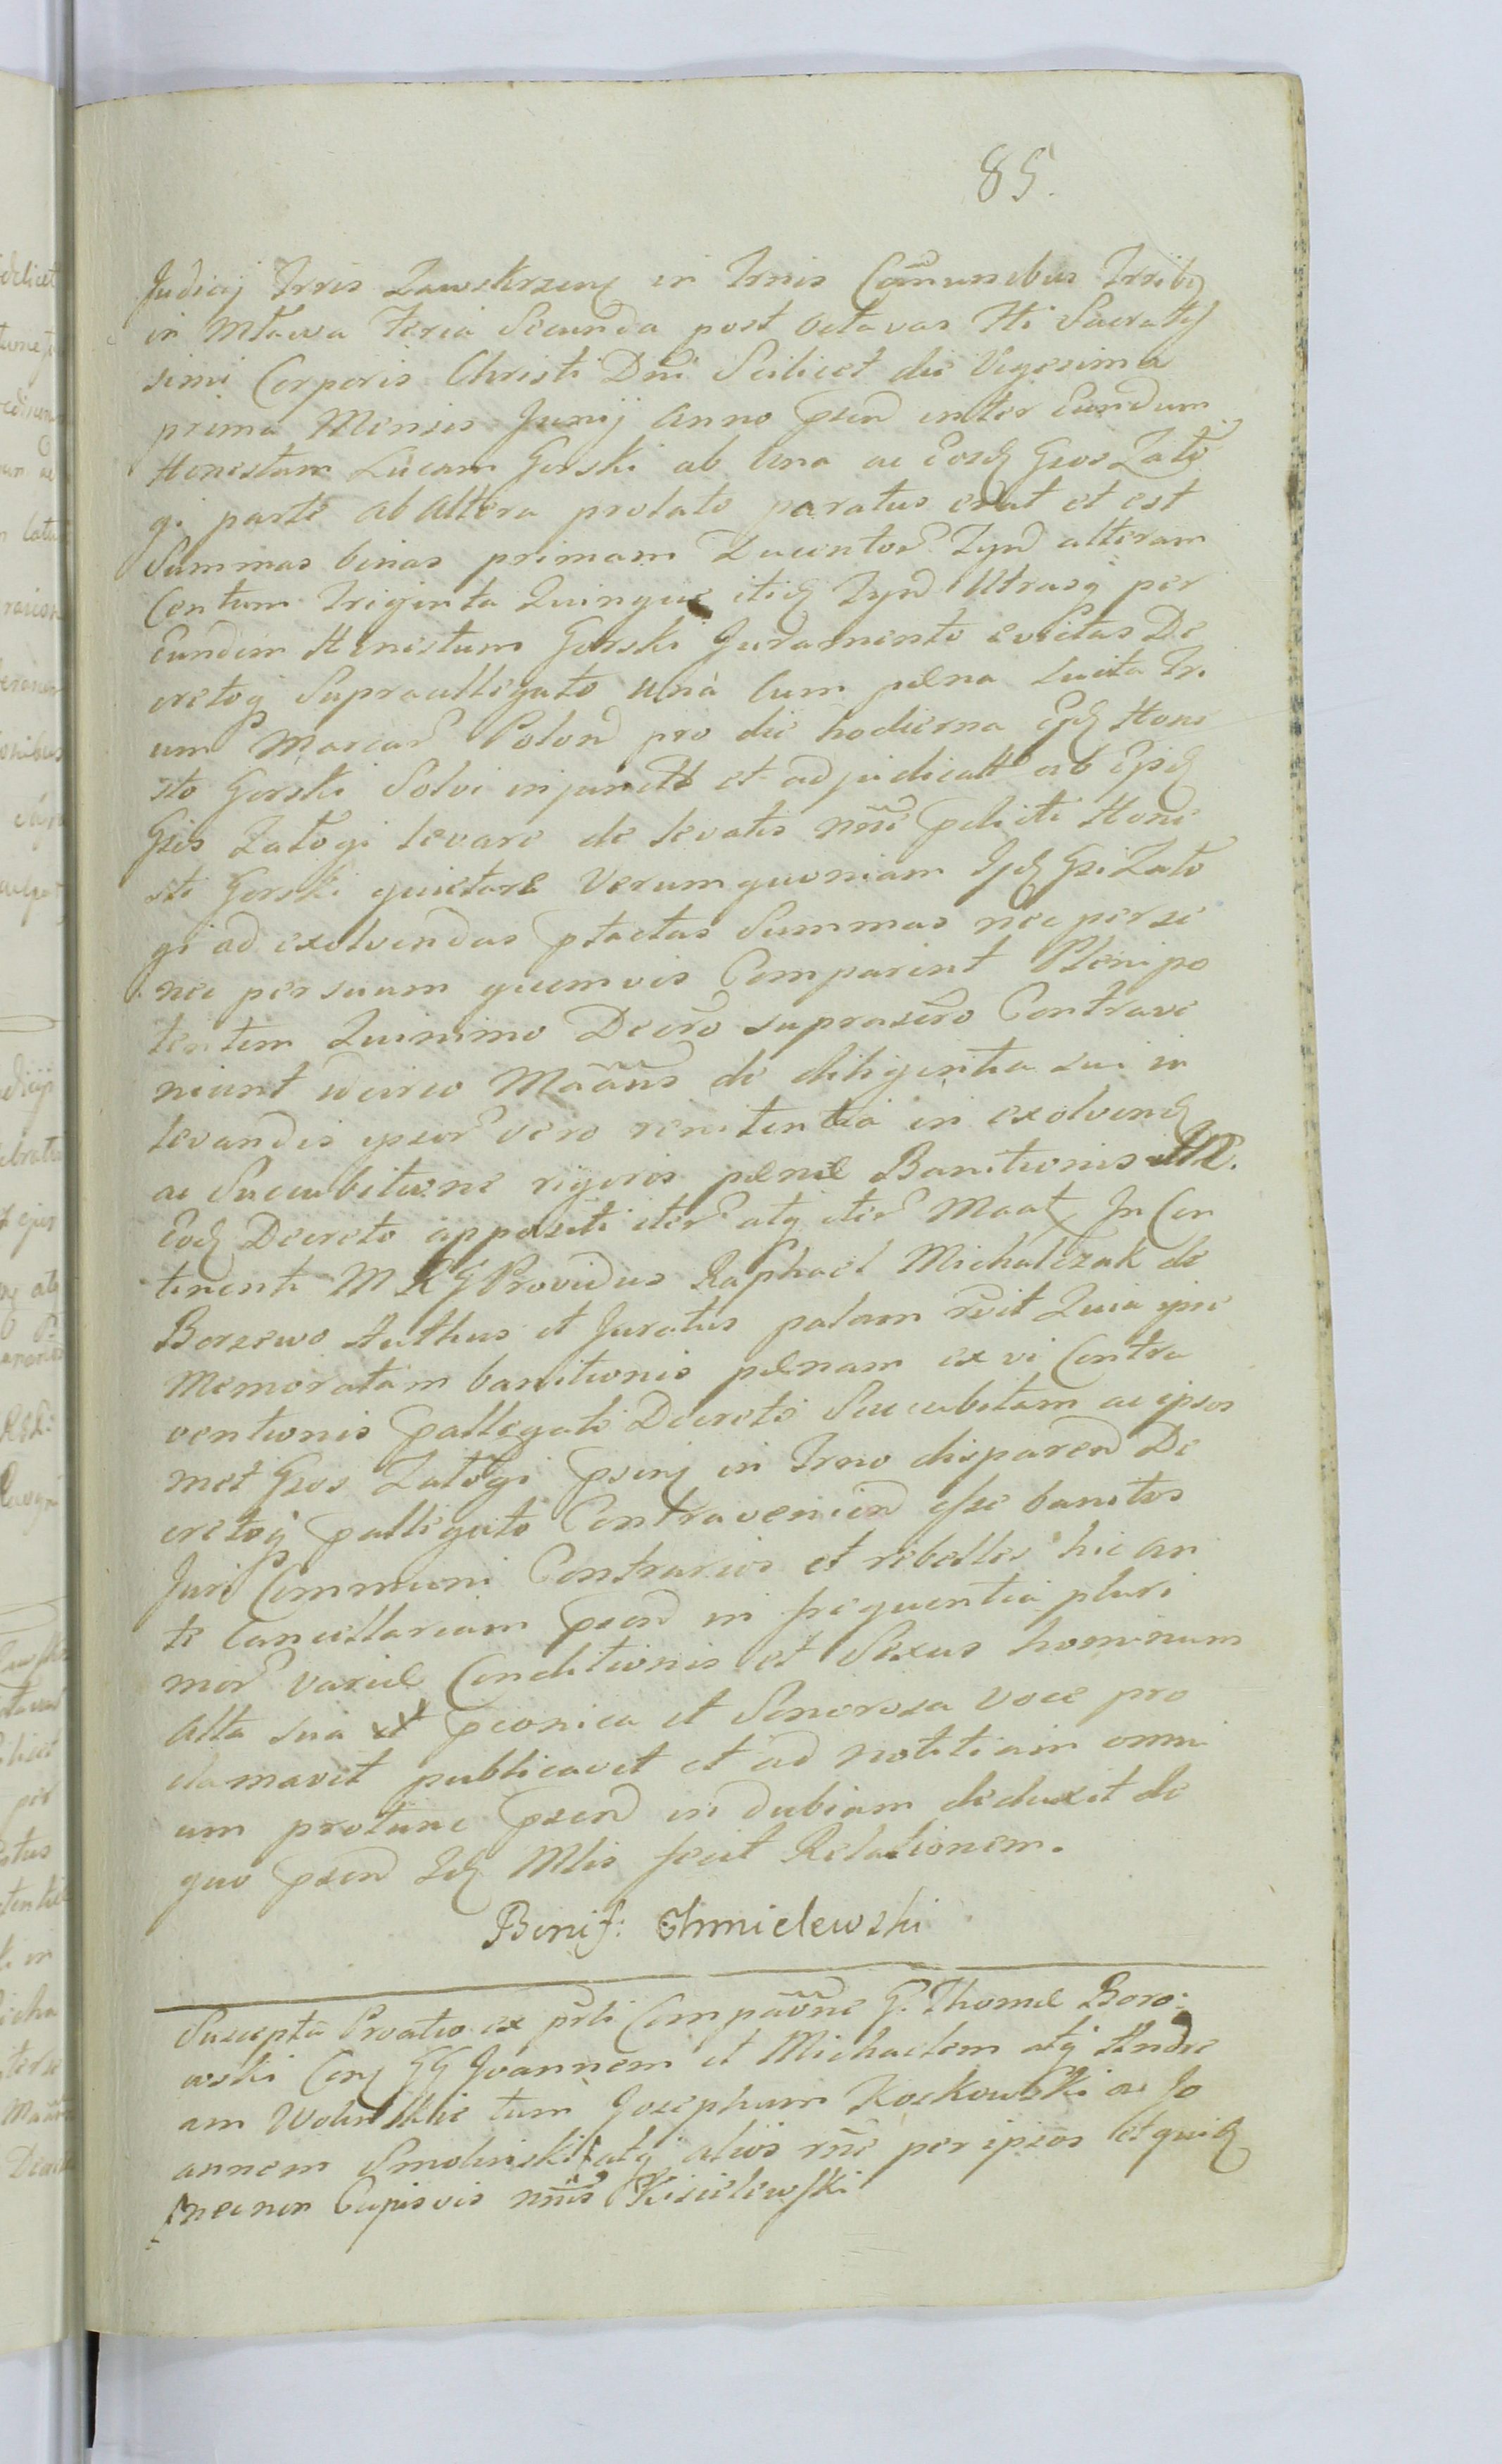 85.
Judicij Trris Zawskrzen in Trnis Comunibus Trribq
in Mława Feria Secunda post Octavas Fti Sacratis
simi Corporis Christi Dni Scilicet die Vigesima
prima Mensis Junij Anno psen inter Eundum
Honestum Lucam Gorski ab Una ac Eosd Gsos Zało
gi parte ab altera prolato paratus erat et est
Summas binas primam Ducentor Tynf alteram
Centum Triginta Quinque itid Tynf Utrasq per
Eundem Honestum Gorski Juramento evictas De
cretoq Supraallegato unà cum pæna luita Tri
um Marcar Polon pro die hodierna Epd Hone
sto Gorski Solvi injunctt et adjudicatt ab Ipsd
Gsis Załogi levare de levatis nne pdicti Hone
sti Gorski quietare Verum quoniam Ijd Gsi Zało
gi ad exolvendas ptactas Summas nec per se
nec per suum quemvis Comparint Plenipo
tentem Quinimo Decro suprascro Contrave
niunt idcirco Maans de diligentia sui in
levandis ipsor vero renitentia in exolvend
ac Succubitione rigoris pænæ Banitionis
Eod Decreto appositi iter atq iter Maat In Con
tinenti M R G Providus Raphael Michalczak de
Borzewo Authus et Juratus palam rcvit Quia ipse
Memoratam banitionis pænam ex vi Contra
ventionis pallegati Decreti Succubitam ac ipsos
met Gsos Załogi psenj in Trno disparen De
cretoq pallegato Contravenien esse banitos
Juri Communi Contrarios et rebelles hic an
te Cancellariam psen in frequentia pluri
mor variæ Conditionis et Sexus hominum
alta sua et pconica et Sonorosa voce pro
clamavit publicavit et ad notitiam omni
um protunc psen in dubiam deduxit de
quo psen Id Mlis fecit Relationem.
Bonif: Chmielewski
Suscepta Proatio ex prli Compaone G. Thomæ Boro:
wski Con GG Joannem et Michaelem atq Andre
am Woliński tum Josephum Koskowski ac Jo
annem Smolinski atq alios rne per ipsos et quid
necnon Cujusvis nnis Kisielewski